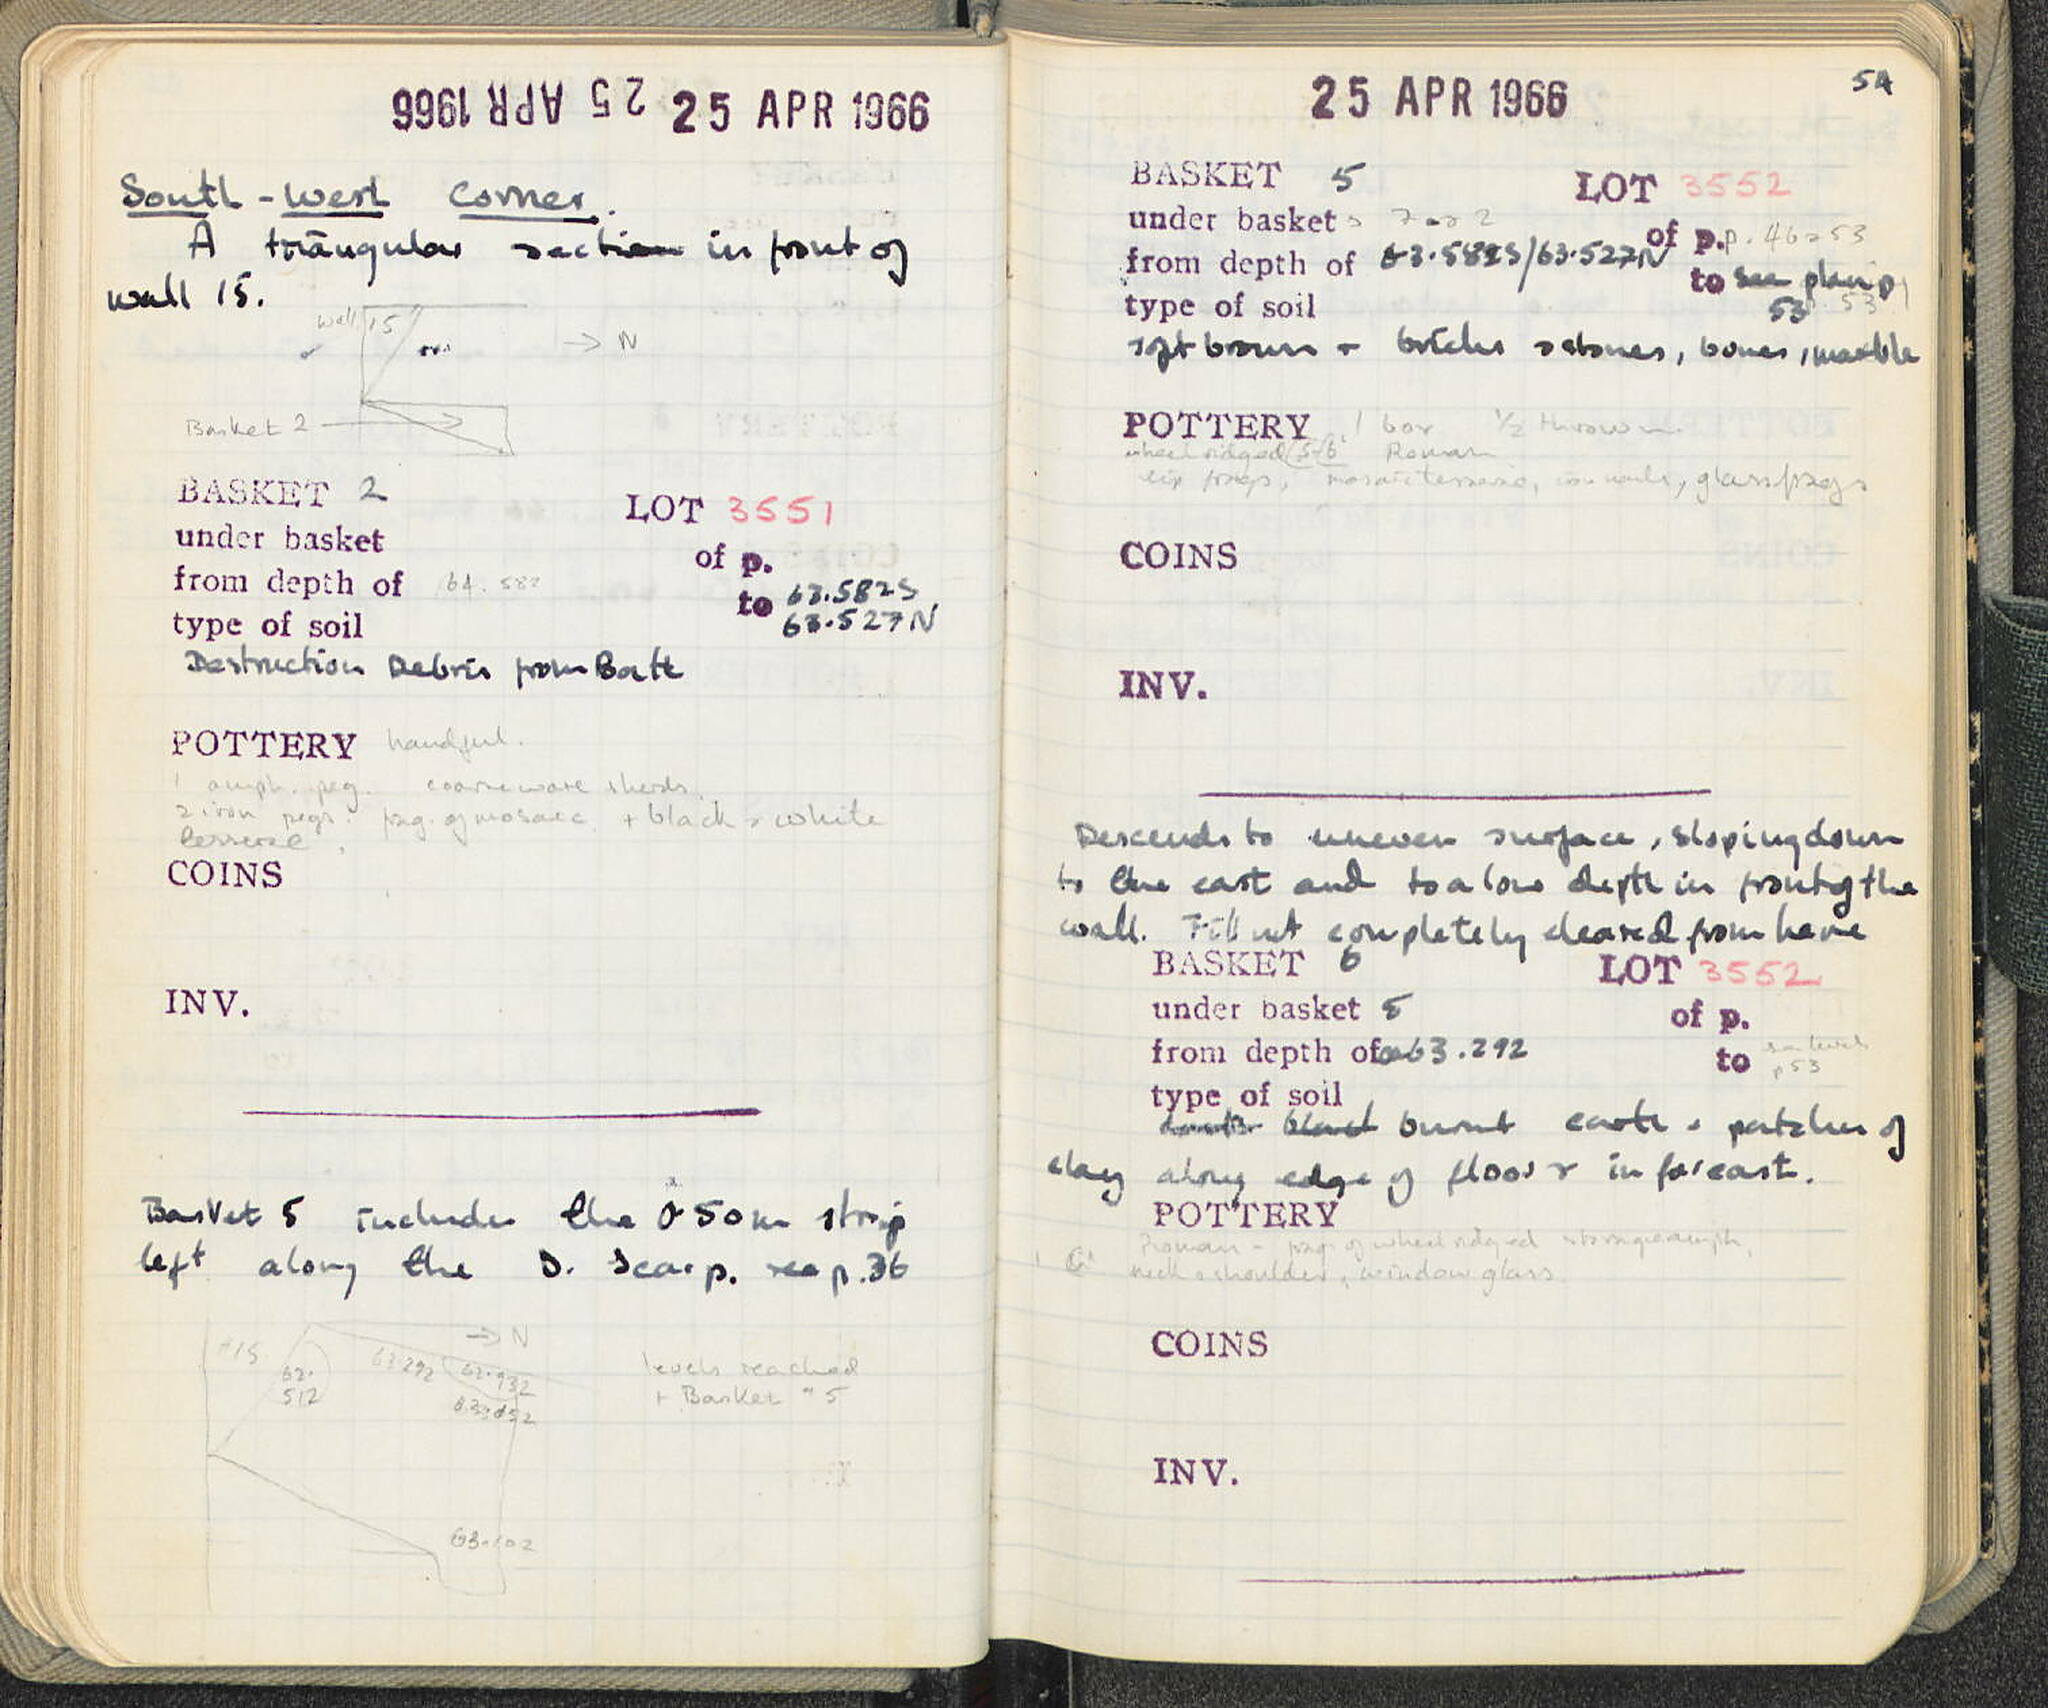 25 APR 1966 25 APR 1966
South-West Corner.
A triangular section in front of
wall 15.
Wall 15
→ N
Basket 2
BASKET 2
LOT 3551
under basket
of p.
from depth of 64.582
to 63.582S
63.527N
type of soil
Destruction Debris from Bath
POTTERY handful.
1 amph. peg. coarseware sherds.
2 iron pegs. frag. of mosaic + black & white
tesserae.
COINS
INV.
Basket 5 includes the 0.50m strip
left along the S. Scarp. see p. 36
→ N
62.
512
63.292
62.932
levels reached
+ Basket # 5
25 APR 1966
54
BASKET 5
LOT 3552
under baskets 7 or 2
of p. p. 46 & 53
from depth of 63.582S/63.527N
to see plan p
53
type of soil
soft brown + bricks & stones, bones, marble
POTTERY 1 box 1/2 thrown.
wheel ridged (5-6) Roman
frags, mosaic tesserae, iron nails, glass frags
COINS
INV.
Descends to uneven surface, sloping down
to the east and to a low depth in front of the
wall. Fill not completely cleared from here
BASKET 6
LOT 3552
under basket 5
of p.
from depth of 63.292
to see levels
p 53
type of soil
burnt earth & patches of
clay along edge of floor & in far east.
POTTERY
Roman - frag. of wheel ridged storage amph,
neck & shoulder, window glass
COINS
INV.